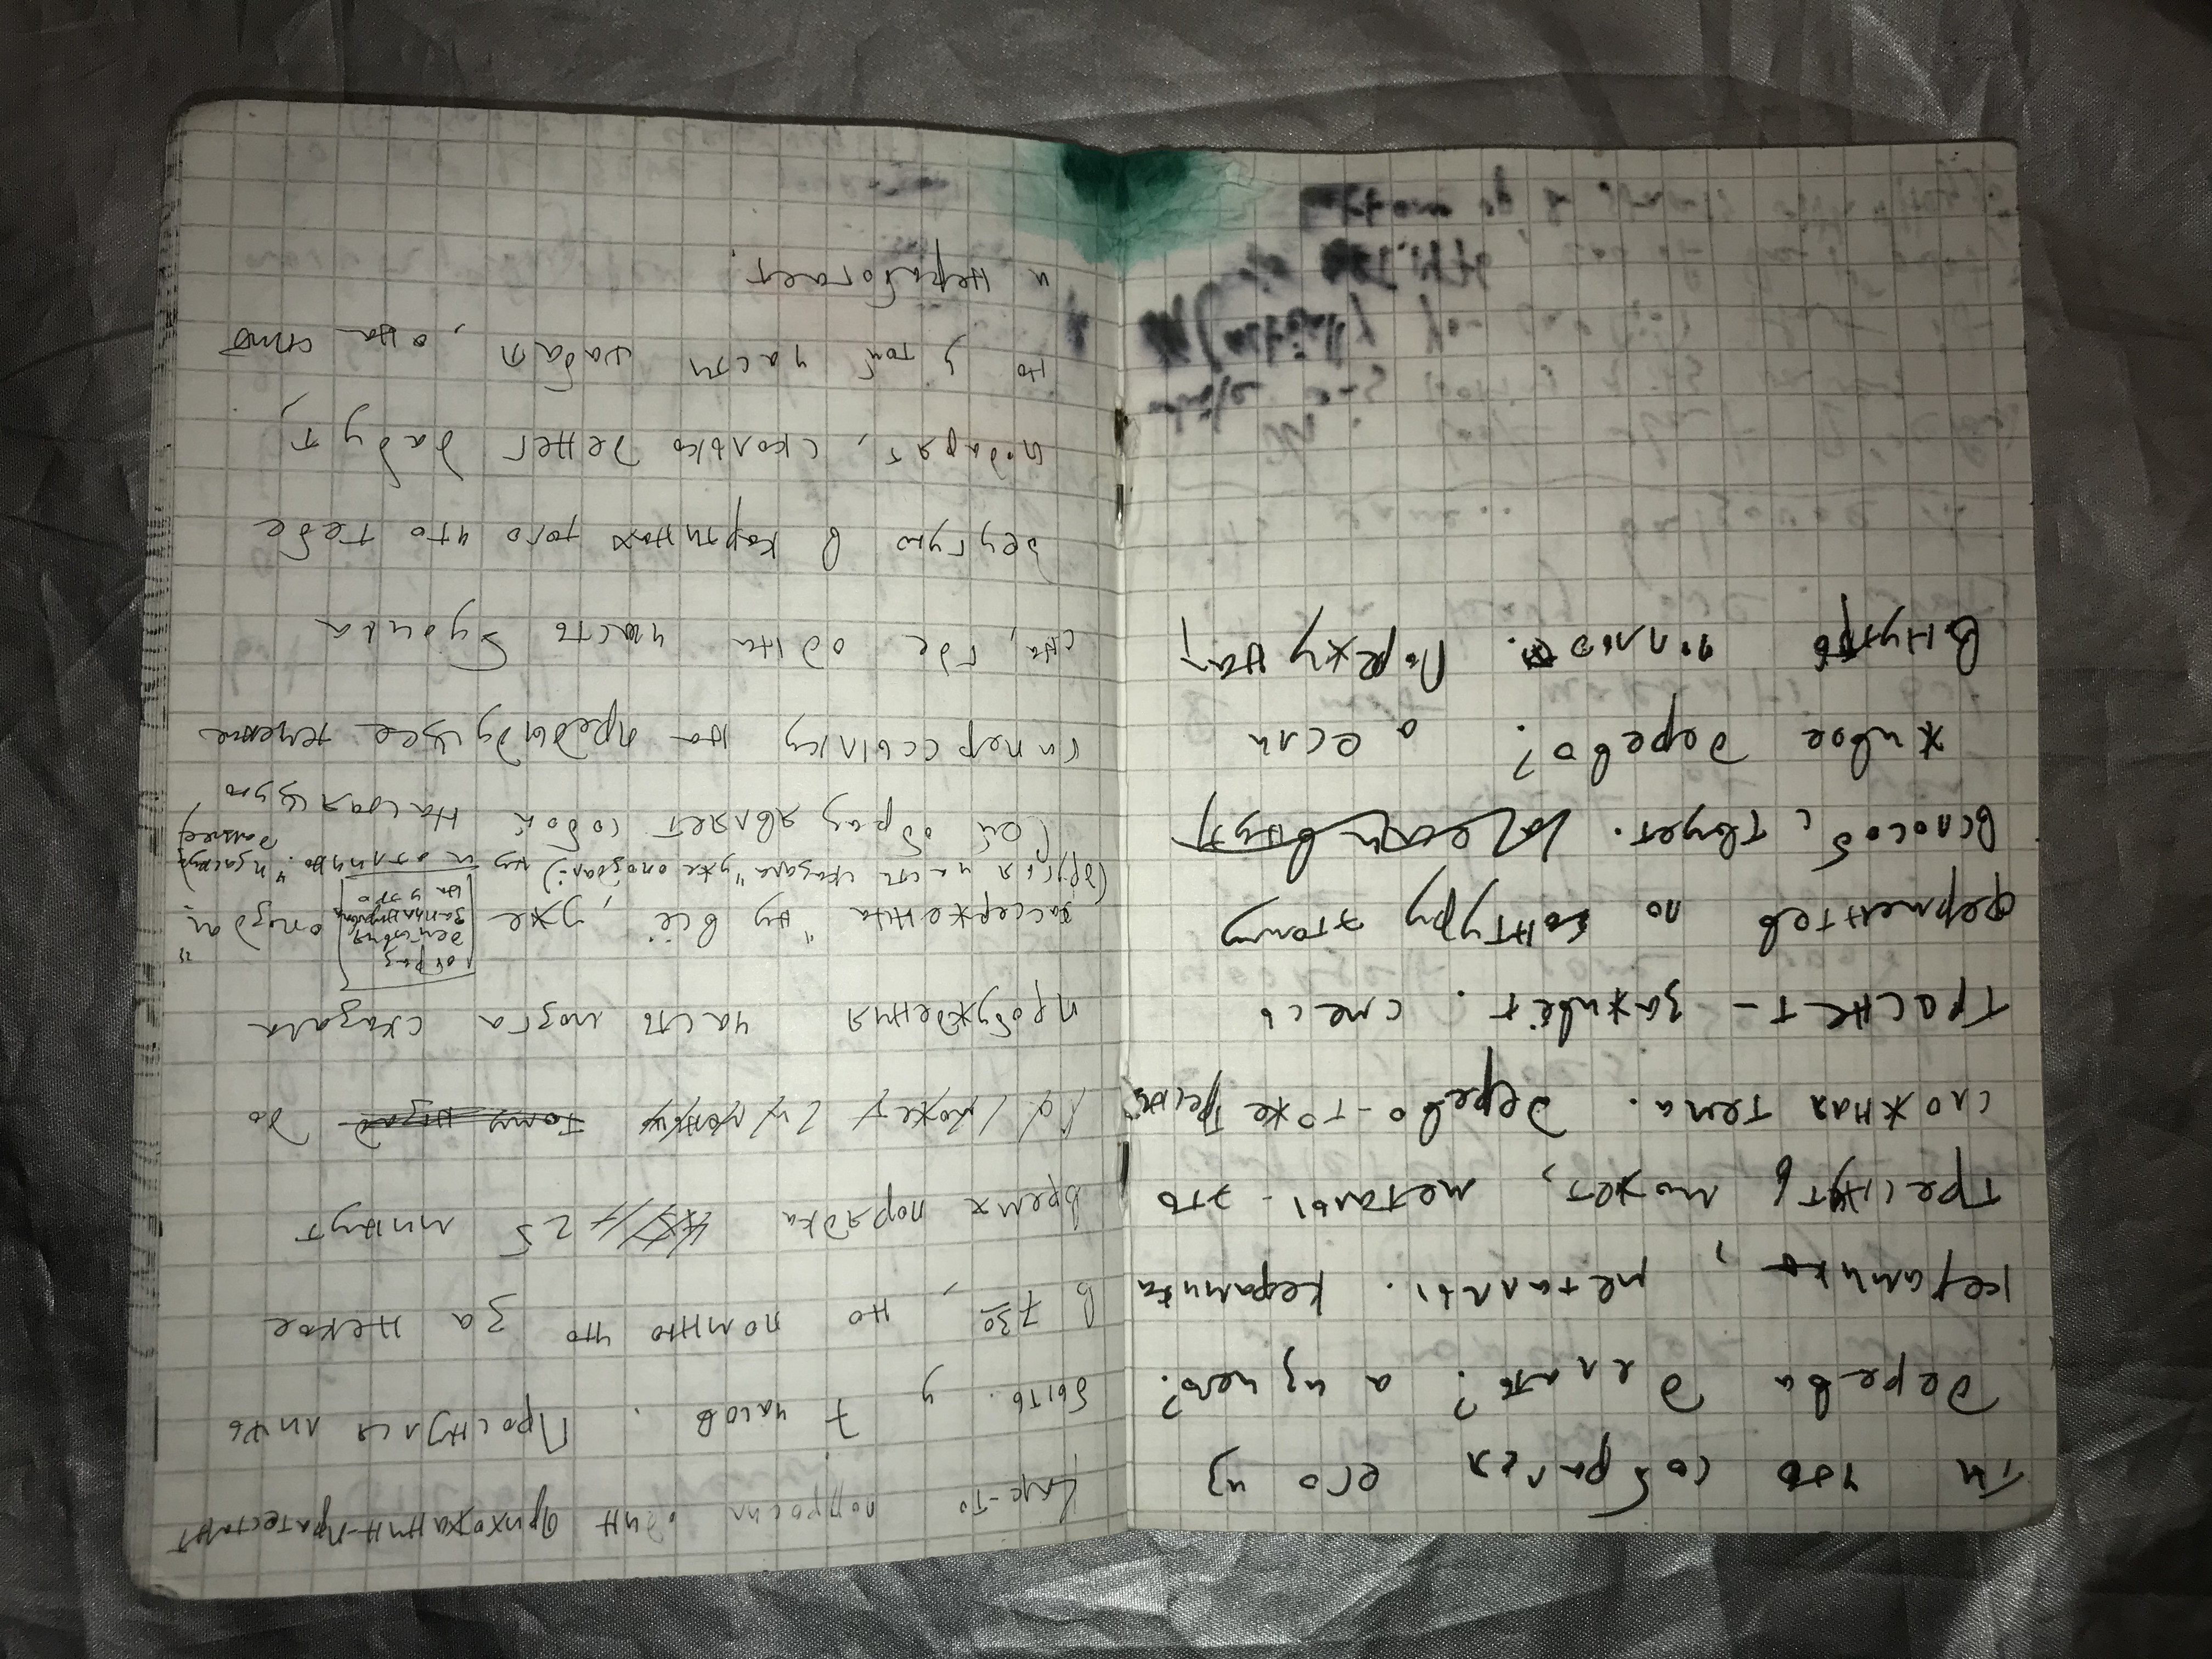 ты что собрался его из
дерева делать? а из чего?
керамика, металлы. Керамика
треснуть может, металы - это
сложная тема. Дерево - тоже
треснет - заживёт. смесь
ферментев по контуру этому
вспособствует.
живое дерево? а если
внутрь Поржу нат
Как-то попросил один прихожанин-пратестант
быть у 7 часов. Проснулся лишь
в 7 30, но помню что за некое
время порядка 45 25 минут
тому назад до
пробуждения часть мозга сказала
рассерженна "ну всё, уже опоздал"
образ
действия
на утро
(другая часть сказала "уже опоздал:) ну и отлично." и заснул
далее)
Сей образ являет собой настаящую
гиперссылку на предыдущее течение
сна, где одна часть будила
другую в картинах того что тебе
подарят, сколько денег дадут,
но у той части она спит
и неработает.